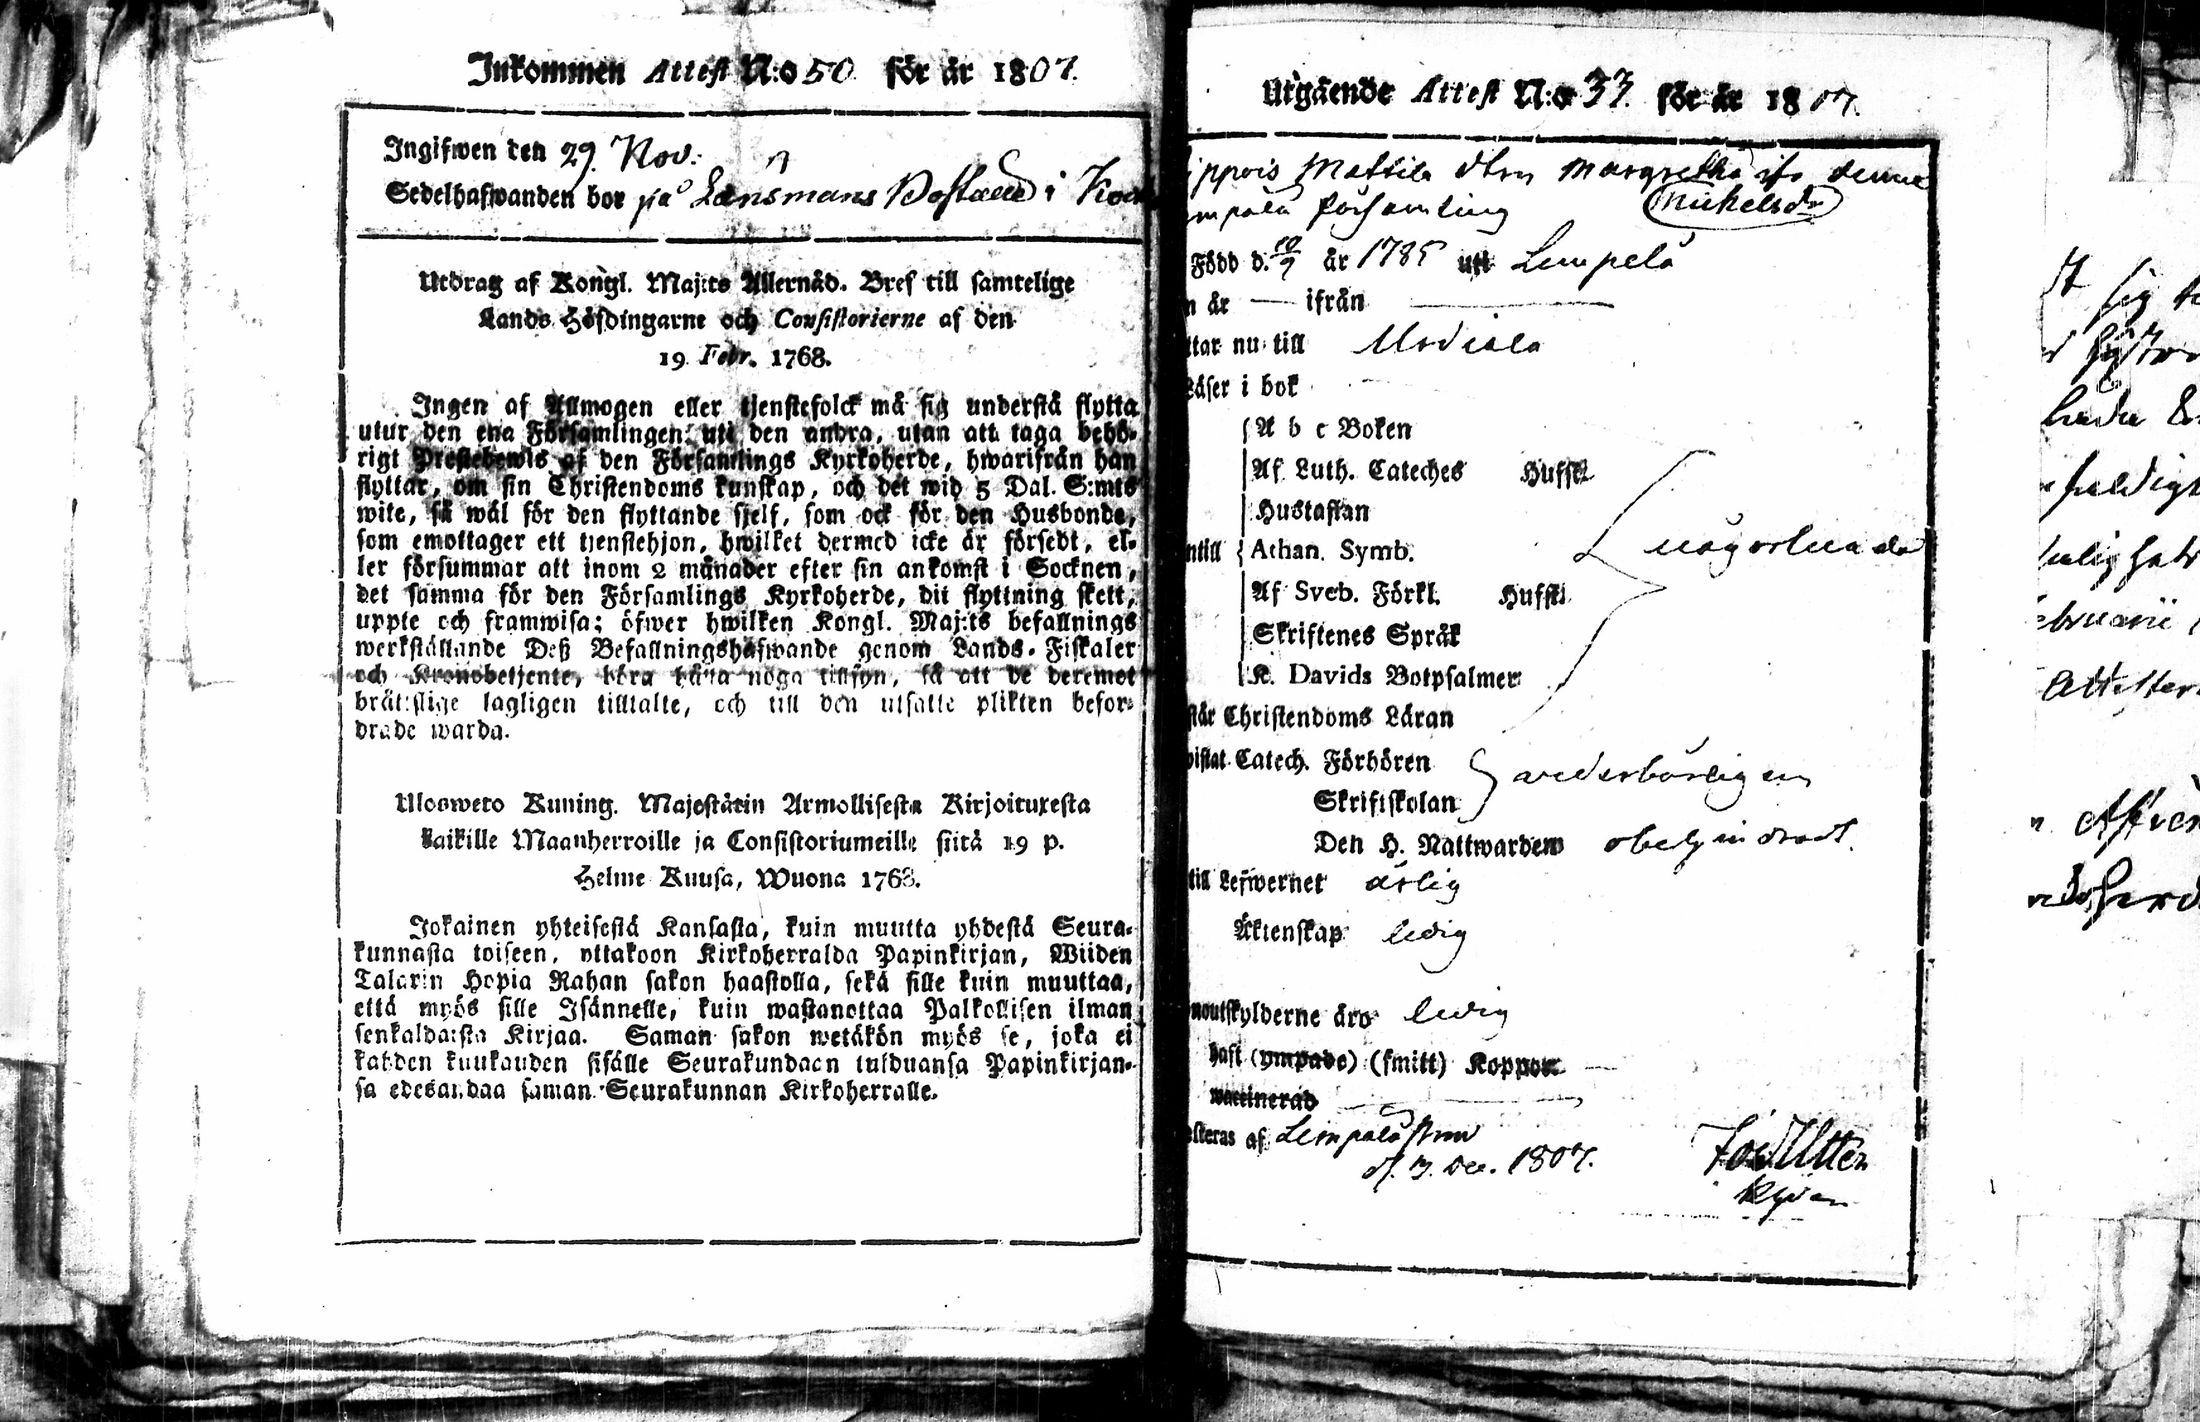 Inkommen Attest N:o 50 för år 1807.
Ingifwen den 29. Nov:
Sedelhafwanden bor på Länsmans Bostaelle i
Utdrag af Kongl. Maj:ts Allernåd. Bref till samtelige
Lands Höfdingarne och Consistorierne af den
19 Febr. 1768.
Ingen af Allmogen eller tjenstefolck må sig understå flytta
utur den ena Församlingen uti den andra, utan att taga behö-
rigt Prestebewis af den Församlings Kyrkoherde, hwarifrån han
flyttar, om sin Christendoms kunskap, och det wid 5 Dal. S:mts
wite, så wäl för den flyttande sjelf, som ock för den Husbonde,
som emottager ett tjenstehjon, hwilket dermed icke är försedt, el-
ler försummar att inom 2 månader efter sin ankomst i Socknen,
det samma för den Församlings Kyrkoherde, dit flyttning skett,
uppte och framwisa; öfwer hwilken Kongl. Maj:ts befallnings
werkställande Deß Befallningshafwande genom Lands-Fiskaler
och Kronobetjente, böra hålla noga tillsyn, så att de deremot
brättslige lagligen tilltalte, och till den utsatte plikten befor-
drade warda.
Ulosweto Kuning. Majestätin Armollisesta Kirjoituxesta
kaikille Maanherroille ja Consistoriumeille siitä 19 p.
Helme Kuusa, Wuona 1768.
Jokainen yhteisestä Kansasta, kuin muutta yhdestä Seura-
kunnasta toiseen, ottakoon Kirkoherralda Papinkirjan, Wiiden
Talarin Hopia Rahan sakon haastolla, sekä sille kuin muuttaa,
että myös sille Isännelle, kuin wastanottaa Palkollisen ilman
senkaldaista Kirjaa. Saman sakon wetäkön myös se, joka ei
kahden kuukauden sisälle Seurakundaan tulduansa Papinkirjan-
sa edesandaa saman Seurakunnan Kirkoherralle.
Utgående Attest N:o 37. för år 1807.
ippois Mattila dtrn Margretha ifr denne
mpälä församling Michelsdr
Född d. 10/7 år 1785 uti Lempelä
n år — ifrån —
ttar nu till Urdiala
Läser i bok
A b c Boken
Af Luth. Cateches Hufst
Hustaflan
ntill Athan. Symb. någorlunda
Af Sveb. Förkl. Hufst
Skriftenes Språk
K. Davids Botpsalmer
står Christendoms Läran
vistat Catech. Förhören wederbörligen
Skriftskolan
Den H. Nattwarden obehindradt.
till Lefwernet ärlig
Äktenskap ledig
noutskylderne äro ledig
haft (ympade) (smitt) Koppor —
waccinerad —
esteras af Lempälä
d. 3. Dec. 1807.